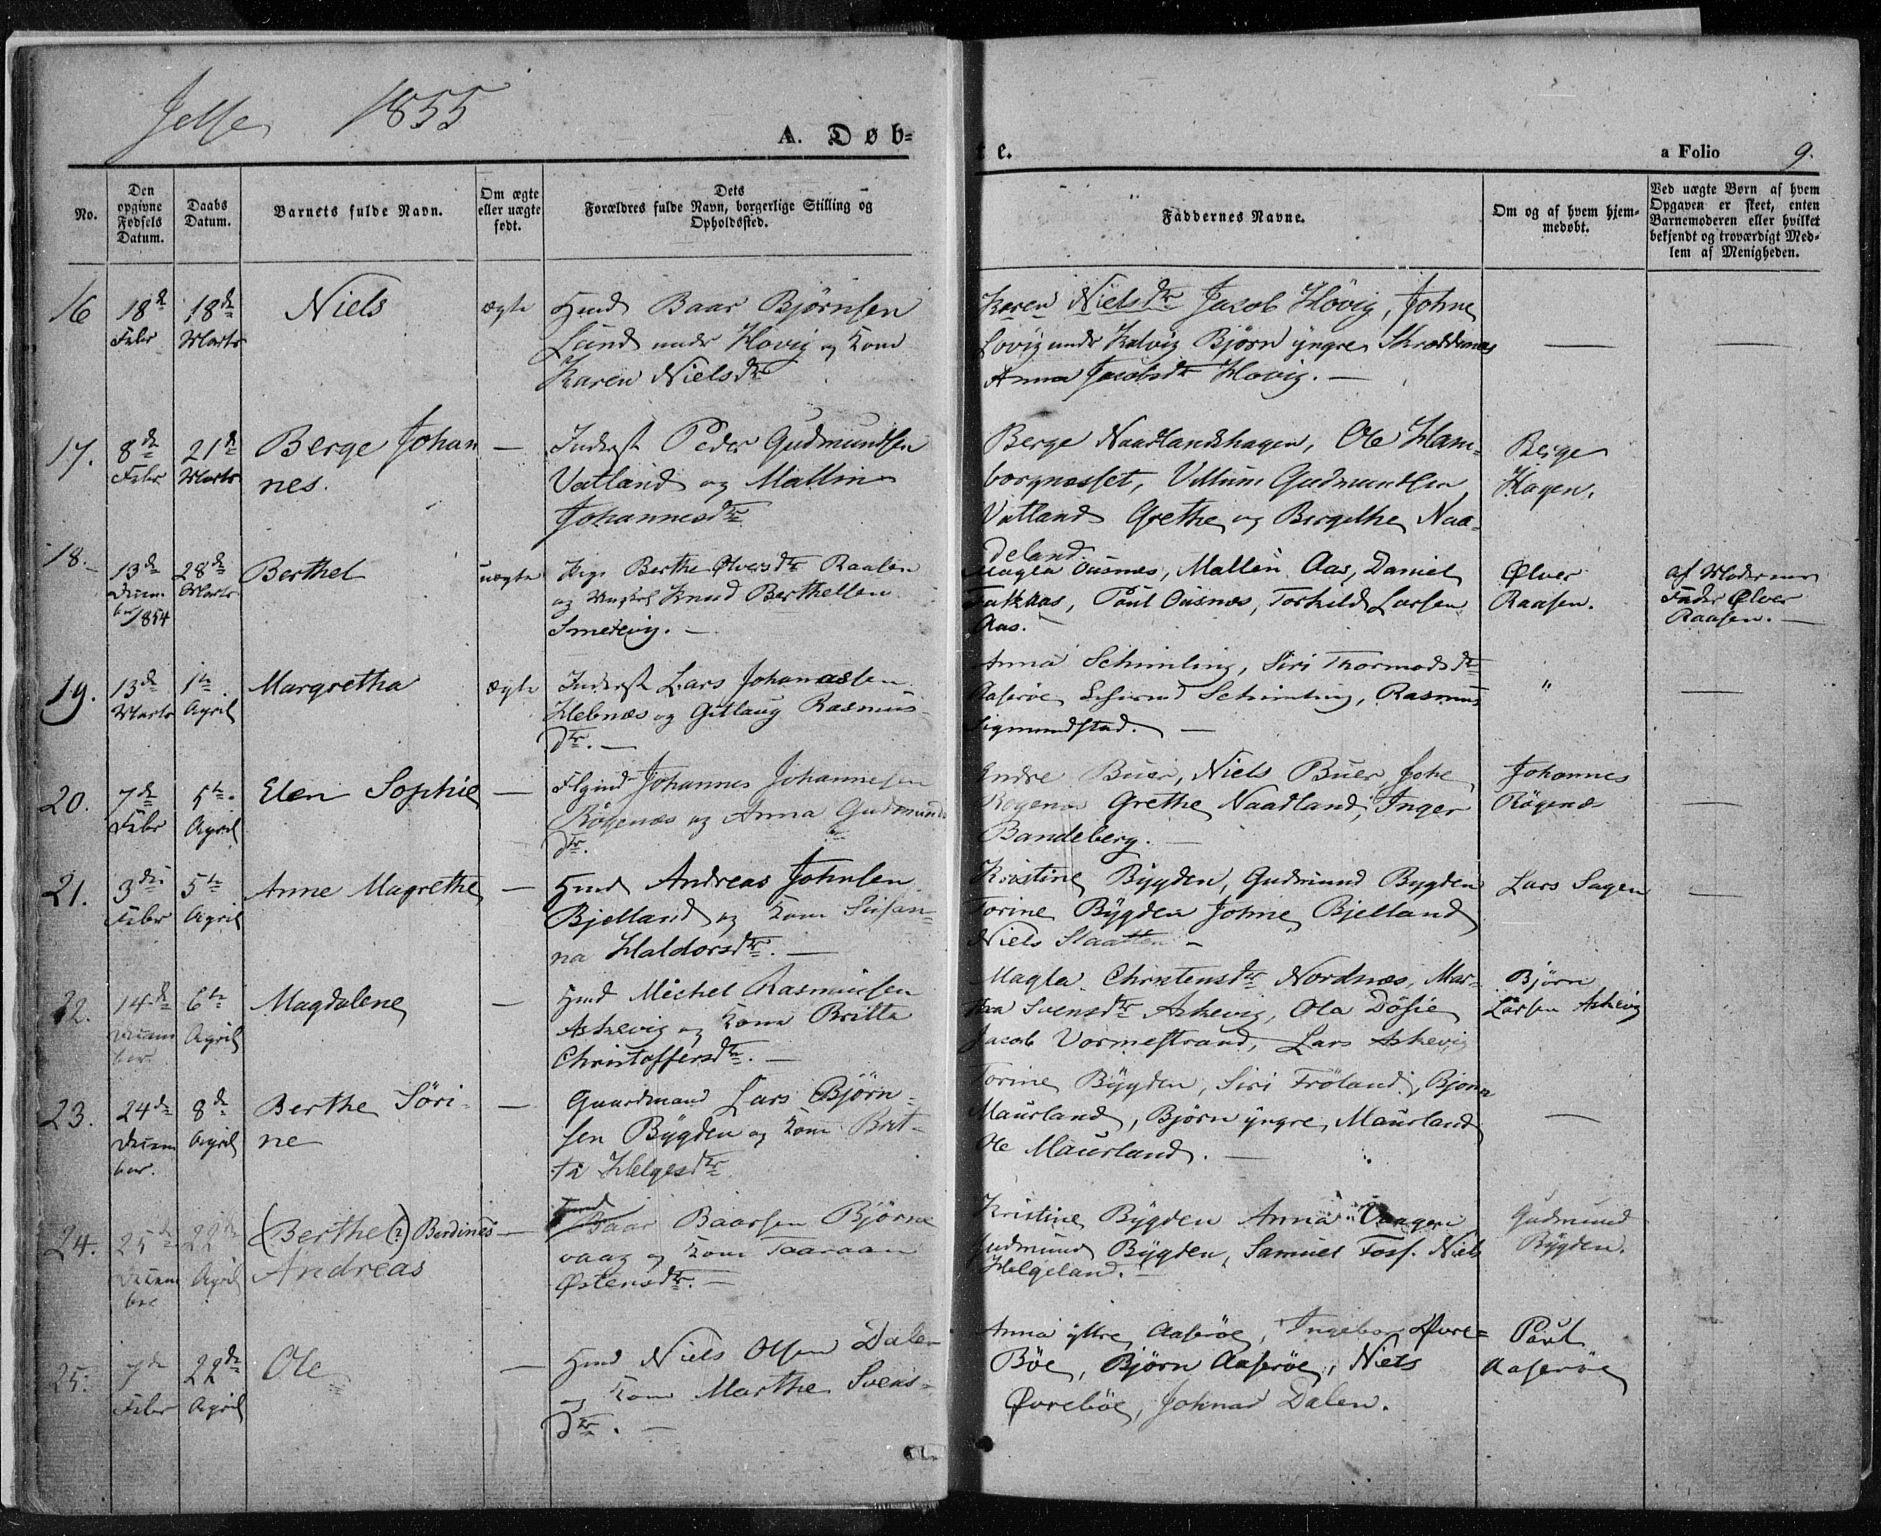 Jelse 1855
A. Døb-
te.
a Folio 9.
No.
Den opgivne Fødsels Datum.
Daabs Datum.
Barnets fulde Navn.
Om ægte eller uægte født.
Dets Forældres fulde Navn, borgerlige Stilling og Opholdssted.
Faddernes Navne.
Om og af hvem hjemmedøbt.
Ved uægte Børn af hvem Opgaven er skeet, enten Barnemoderen eller hvilket bekjendt og troværdigt Medlem af Menigheden.
16 18de Febr 18de Marts Niels ægte
Hmd Baar Bjørnsen
Sand under Hovig og Kone
Karen Nielsdtr
Karen Nielsdtr Jacob Hövig, Johne
Lovig under Hovig Björn yngre
Anna Jacobsdtr Hovig. —
17. 8de Febr 21de Marts Berge Johan
nes. —
Inderst Peder Gudmundsen
Vatland og Mallin
Johannesdtr
Berge Naadlandshagen, Ole Ham-
borgnesset, Villum Gudmundsen
Vatland Grethe og Bergithe Naa-
deland
Berge
Hagen.
18. 13de Decem ber 1854 28de Marts Berthel uægte
Pige Berthe Ølversdtr Raasen
og Ungkarl Knud Berthelsen
Smedvig. —
Magla Ousnes, Mallen Aas, Daniel
Poul Ousnæs, Torkild Larsen
Aas.
Ølver
Raasen.
af Moderens
Fader Ølver
Raasen. —
19. 13de Marts 1te April Margretha ægte
Inderst Lars Johanessen
Hebnæs og Gitlaug Rasmus-
dtr. —
Anna Schimling, Siri Thormodsdtr
Aaserøe Schimling, Rasmus
Sigmundstad. —
"
20. 7de Febr 5te April Elen Sophie —
Johannes Johannesen
Røgenæs og Anna Gudmunds
dtr.
Endre Buer, Niels Buer, Johe
Rogenæs Grethe Naadland, Inger
Bandeberg. —
Johannes
Røgenæs
21. 3die Febr 5te April Anne Magrethe —
Hmd Andreas Johnsen
Bjelland og Kone Susan-
na Haldorsdtr. —
Kristine Bygden, Gudmund Bygden
Torine Bygden Johne Bjelland
Niels Slaatten —
Lars Sagen
22. 14de Decem ber 6te April Magdalene —
Hmd Michel Rasmussen
Askevig og Kone Britta
Christoffersdtr. —
Magla Christensdtr Nordnæs, Mar-
tha Svensdtr Askevig, Ola Dösie
Jacob Vormestrand, Lars Askevig
Björn
Larsen Askevig
23. 24de Decem ber. 8de April Berthe Söri-
ne —
Gaardmand Lars Björn-
sen Bygden og Kone Brit-
ta Helgesdtr
Torine Bygden, Siri Fröland, Bjorn
Maurland, Bjørn yngre Maurland
Ole Maurland. —
24. 25de Decem ber 22de April (Berthe (?)) Berdines
Andreas —
Hmd Baar Baarsen Bjørne
vaag og Kone Taaraan
Østensdtr. —
Kristine Bygden Anna Vaagen
Gudmund Bygden, Samuel Foss. Niels
Helgeland.
Gudmund
Bygden.
25. 7de Febr 22de April Ole —
Hmd Niels Olsen Dalen
og Kone Marthe Svens-
dtr. —
Anna yttre Aaserøe, Ingebor Øvre-
Böe, Bjørn Aaserøe, Niels
Øvrebøe, Johnas Dalen.
Poul
Aaserøe